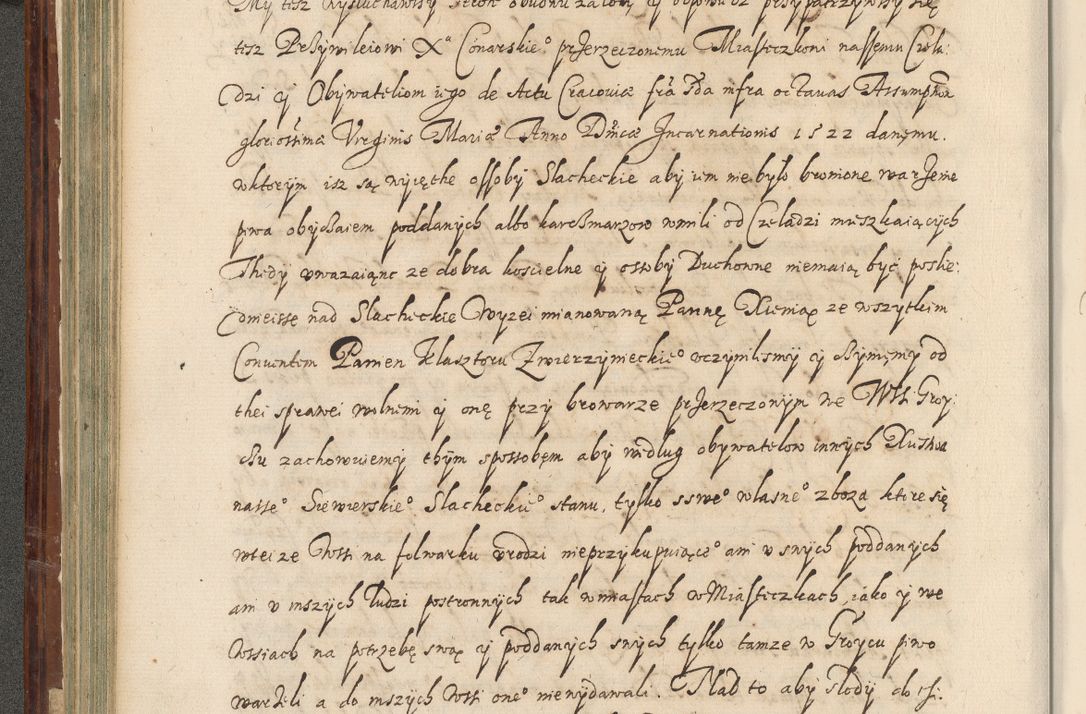 My tesz wysłuchawszy stron obudwu żałob y odpowiedz przypatrzywszy się
tesz Przÿwileiowi Xa Conarskie° przerzeczonemu Miasteczkoni nassemu Czela:
dzi ÿ Obÿwateliom iego de Actu Cracoviæ fra 3da infra octauas Assumptionis
gloriosissimæ Virginis Mariæ Anno Dnicæ Incarnationis 1522 danęmu.
wktorÿm isz są wÿięthe ossobÿ Slacheckie abÿ im nie bÿło bronione warzenie
piwa obÿczaiem poddanÿch albo karczmarzow wmili od Czeladzi mieszkaiącÿch
Thedÿ vwazaiąnc ze dobra koscielne ÿ ossobÿ Duchowne niemaią bÿć poslie:
dnieisse nad Slacheckie Wÿzei mianowaną Pannę Xienią ze wszÿtkim
Conuentem Panien Klasztoru Zwierzÿnieckie° vczÿnilismÿ ÿ czÿnięmÿ od
thei sprawei wolnemi ÿ onę przÿ browarze przerzeczonÿm we Wssi Groÿ:
czu zachowuiemÿ thÿm sposobęm abÿ według obÿwatelow innÿch Xięstwa
nasse° Siewierskie° Slacheckie° stanu, tÿlko sswe° własne° zboza ktore się
wteize Wssi na folwarku vrodzi nieprzÿkupuiące° ani v swÿch poddanÿch
ani v inszÿch ludzi postronnÿch tak wmiastach wMiasteczkach iako ÿ we
Wssiach na potrzebę swą ÿ poddanÿch swÿch tÿlko tamze w Groÿcu piwo
warzeli a do inszÿch Wssi one° niewÿdawali. Nad to abÿ słodÿ do